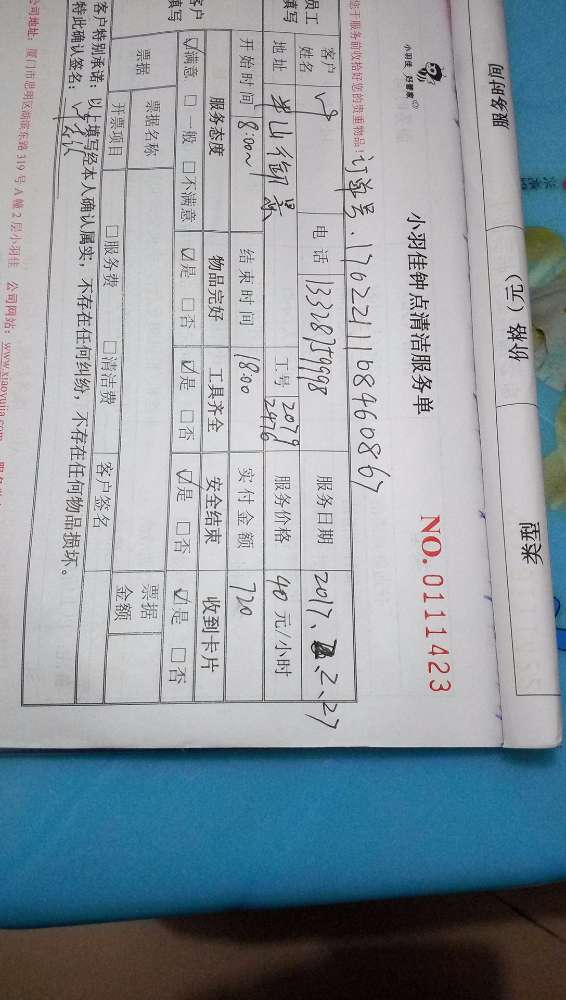 服务时间 价格（元） 类别
小羽佳 好管家
小羽佳钟点清洁服务单
NO. 0111423
您于服务前收检好您的贵重物品！订单号.17022111084608 67
员工填写 客户姓名 电话 13328759998 服务日期 2017、2、27
地址 半山御景 工号 2079 2476 服务价格 40 元/小时
开始时间 8:00~ 结束时间 18:00 实付金额 720
客户填写 服务态度 物品完好 工具齐全 安全结束 收到卡片
☑满意 □一般 □不满意 ☑是 □否 ☑是 □否 ☑是 □否 ☑是 □否
票据 票据名称 客户签名 票据金额
开票项目 □服务费 □清洁费
客户特别承诺：以上填写经本人确认属实，不存在任何纠纷，不存在任何物品损坏。
特此确认签名：
公司地址：厦门市思明区湖滨东路 319 号 A 幢 2 层小羽佳 公司网站：www.xiaoyujia.com